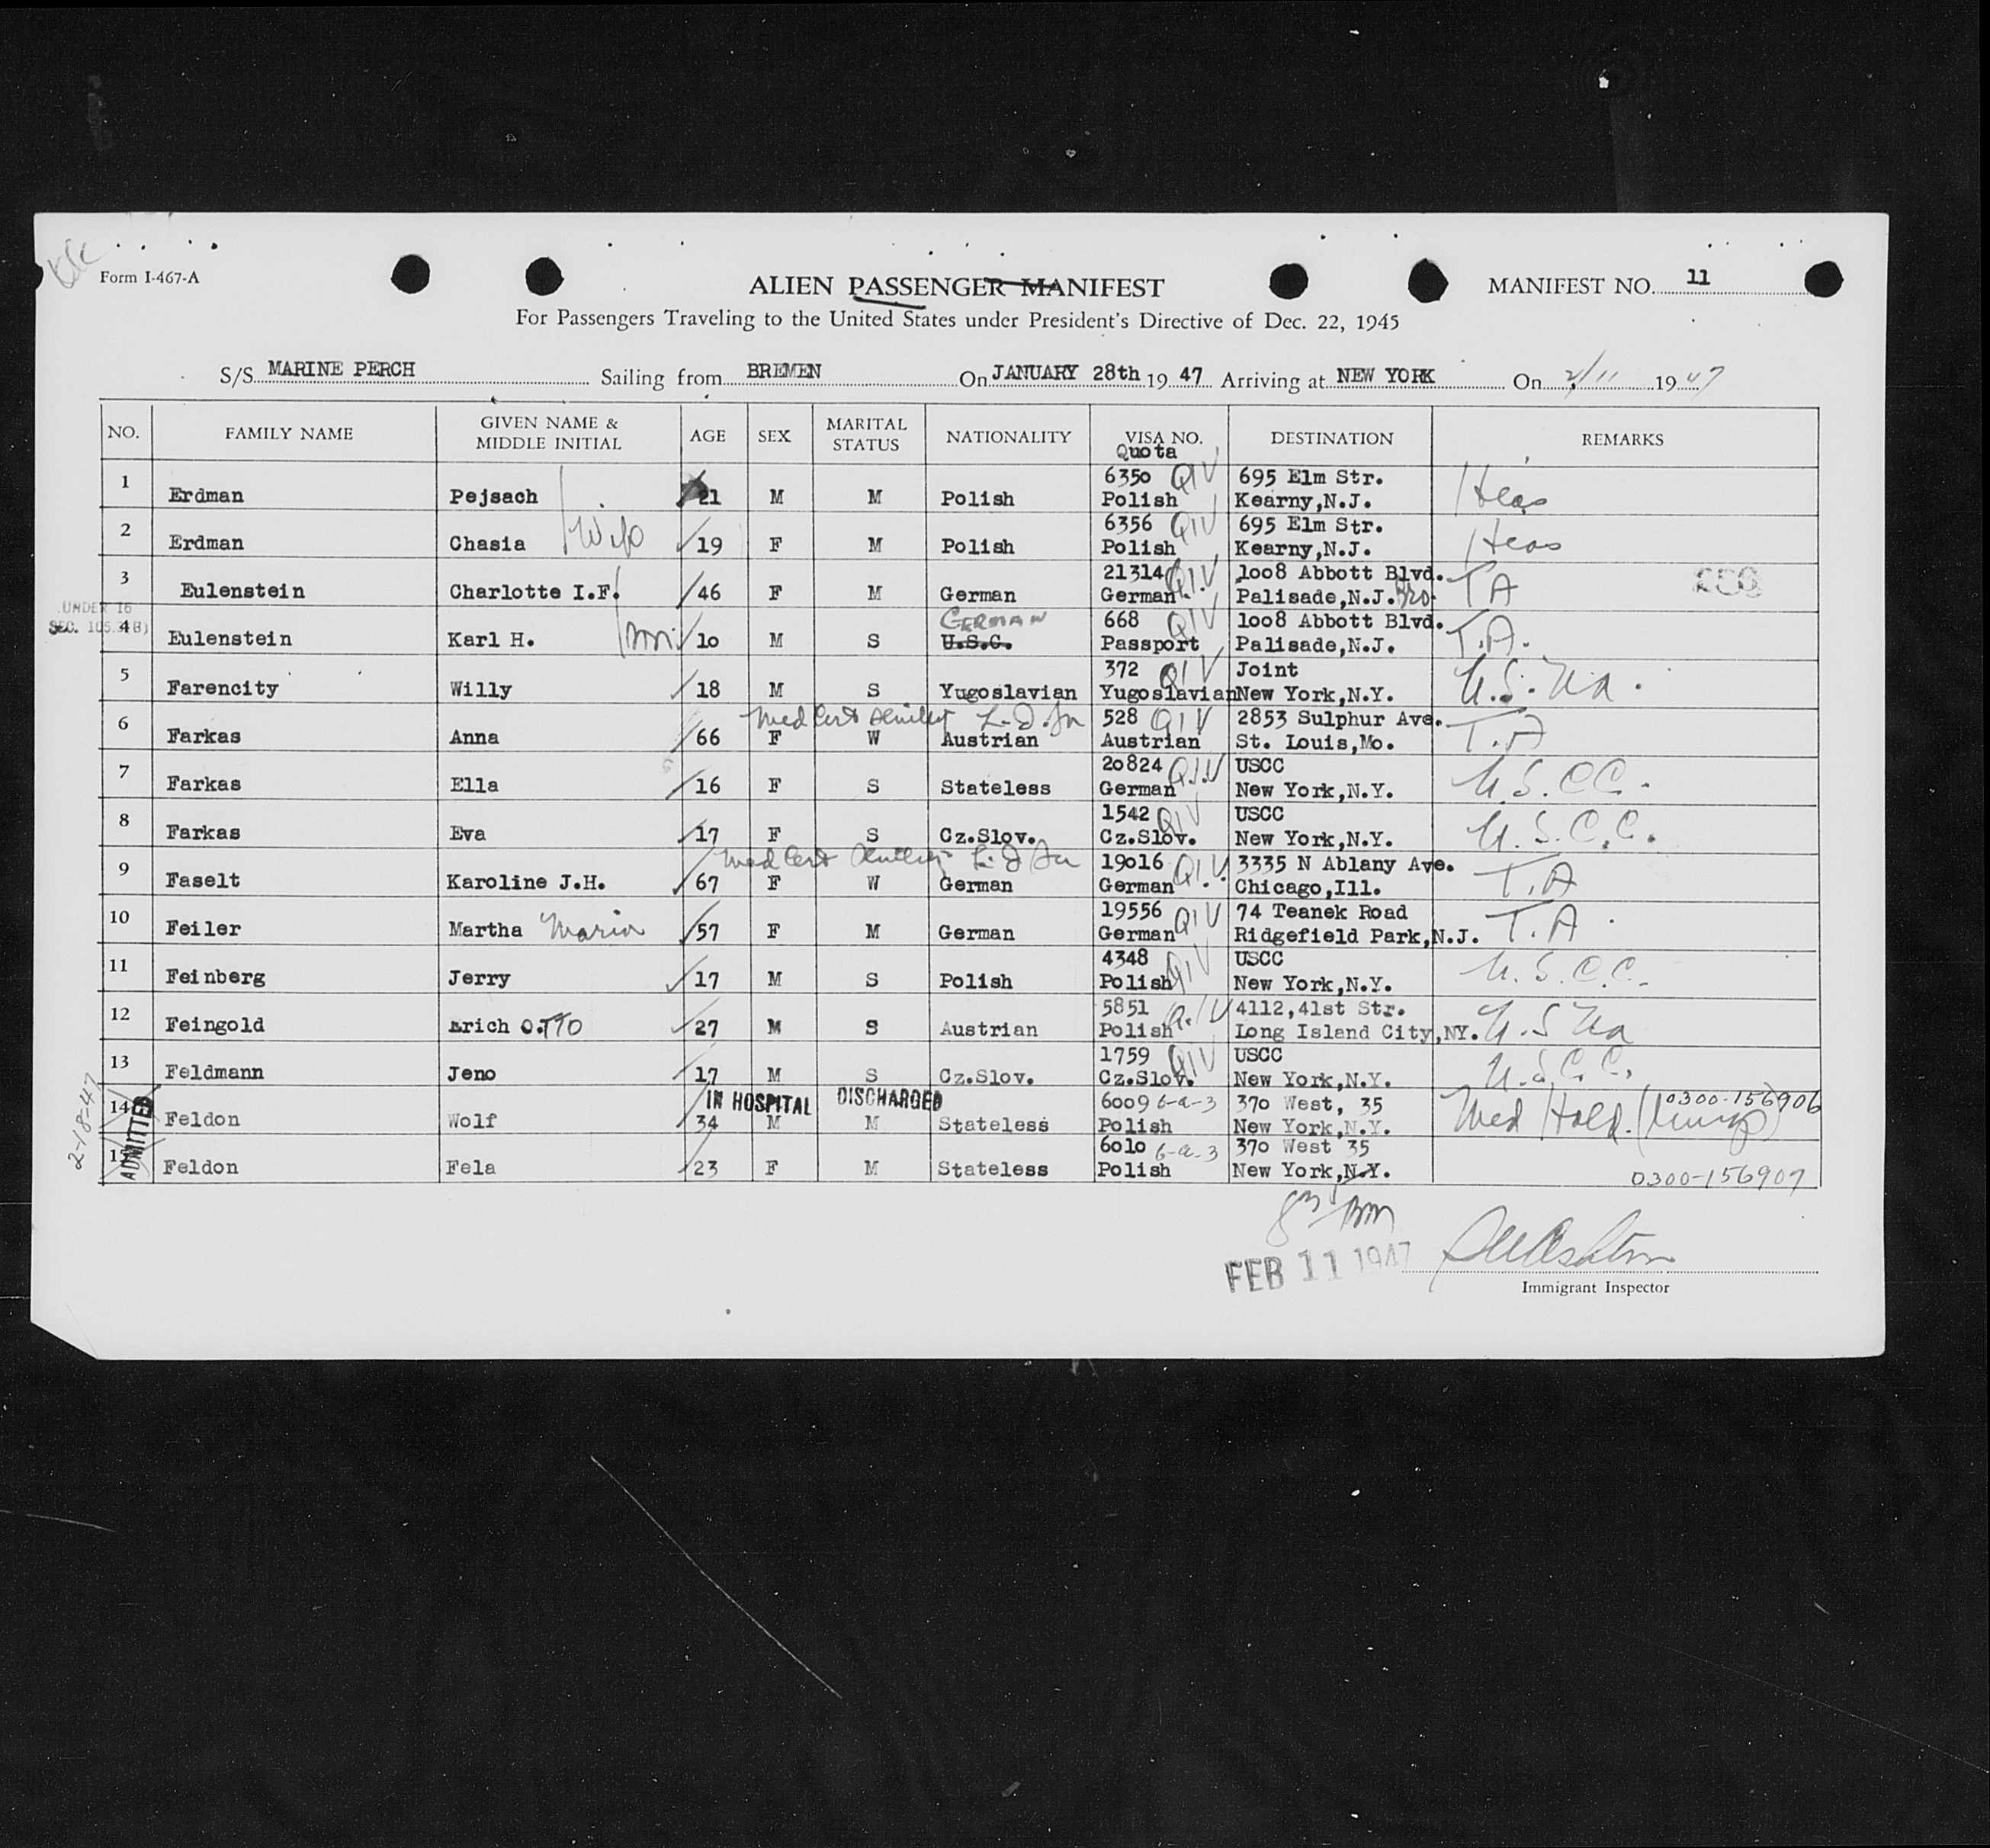 Form I-467-A
ALIEN PASSENGER MANIFEST
MANIFEST NO. 11
For Passengers Traveling to the United States under President's Directive of Dec. 22, 1945
S/S MARINE PERCH Sailing from BREMEN On JANUARY 28th 19 47 Arriving at NEW YORK On 2/11 19 47
NO. FAMILY NAME GIVEN NAME & MIDDLE INITIAL AGE SEX MARITAL STATUS NATIONALITY VISA NO. Quota DESTINATION REMARKS
6350 QIV 695 Elm Str.
1 Erdman Pejsach 21 M M Polish Polish Kearny,N.J. Heas
6356 QIV 695 Elm Str.
2 Erdman Chasia Wife 19 F M Polish Polish Kearny,N.J. Heas
21314 QIV 1008 Abbott Blvd.
3 Eulenstein Charlotte I.F. 46 F M German German Palisade,N.J. T A
UNDER 16
GERMAN 668 QIV 1008 Abbott Blvd.
4 Eulenstein Karl H. 10 M S U.S.C. Passport Palisade,N.J. T.A.
372 QIV Joint
5 Farencity Willy 18 M S Yugoslavian Yugoslavian New York,N.Y. U.S.Na.
Med Cert Senility 528 QIV 2853 Sulphur Ave.
6 Farkas Anna 66 F W Austrian Austrian St. Louis,Mo. T.A
20824 QIV USCC
7 Farkas Ella 16 F S Stateless German New York,N.Y. U.S.CC.
1542 QIV USCC
8 Farkas Eva 17 F S Cz.Slov. Cz.Slov. New York,N.Y. U.S.C.C.
Med Cert Senility 19016 QIV 3335 N Ablany Ave.
9 Faselt Karoline J.H. 67 F W German German Chicago,Ill. T.A
19556 QIV 74 Teanek Road
10 Feiler Martha Maria 57 F M German German Ridgefield Park,N.J. T.A
4348 QIV USCC
11 Feinberg Jerry 17 M S Polish Polish New York,N.Y. U.S.C.C.
5851 QIV 4112,41st Str.
12 Feingold Erich OTTO 27 M S Austrian Polish Long Island City,NY. U.S Na
1759 QIV USCC
13 Feldmann Jeno 17 M S Cz.Slov. Cz.Slov. New York,N.Y. U.S.C.C.
IN HOSPITAL DISCHARGED 6009 6-a-3 370 West, 35 0300-156906
14 Feldon Wolf 34 M M Stateless Polish New York,N.Y. Med Hold.
6010 6-a-3 370 West 35
15 Feldon Fela 23 F M Stateless Polish New York,N.Y. 0300-156907
2-18-47
ADMITTED
FEB 11 1947
Immigrant Inspector